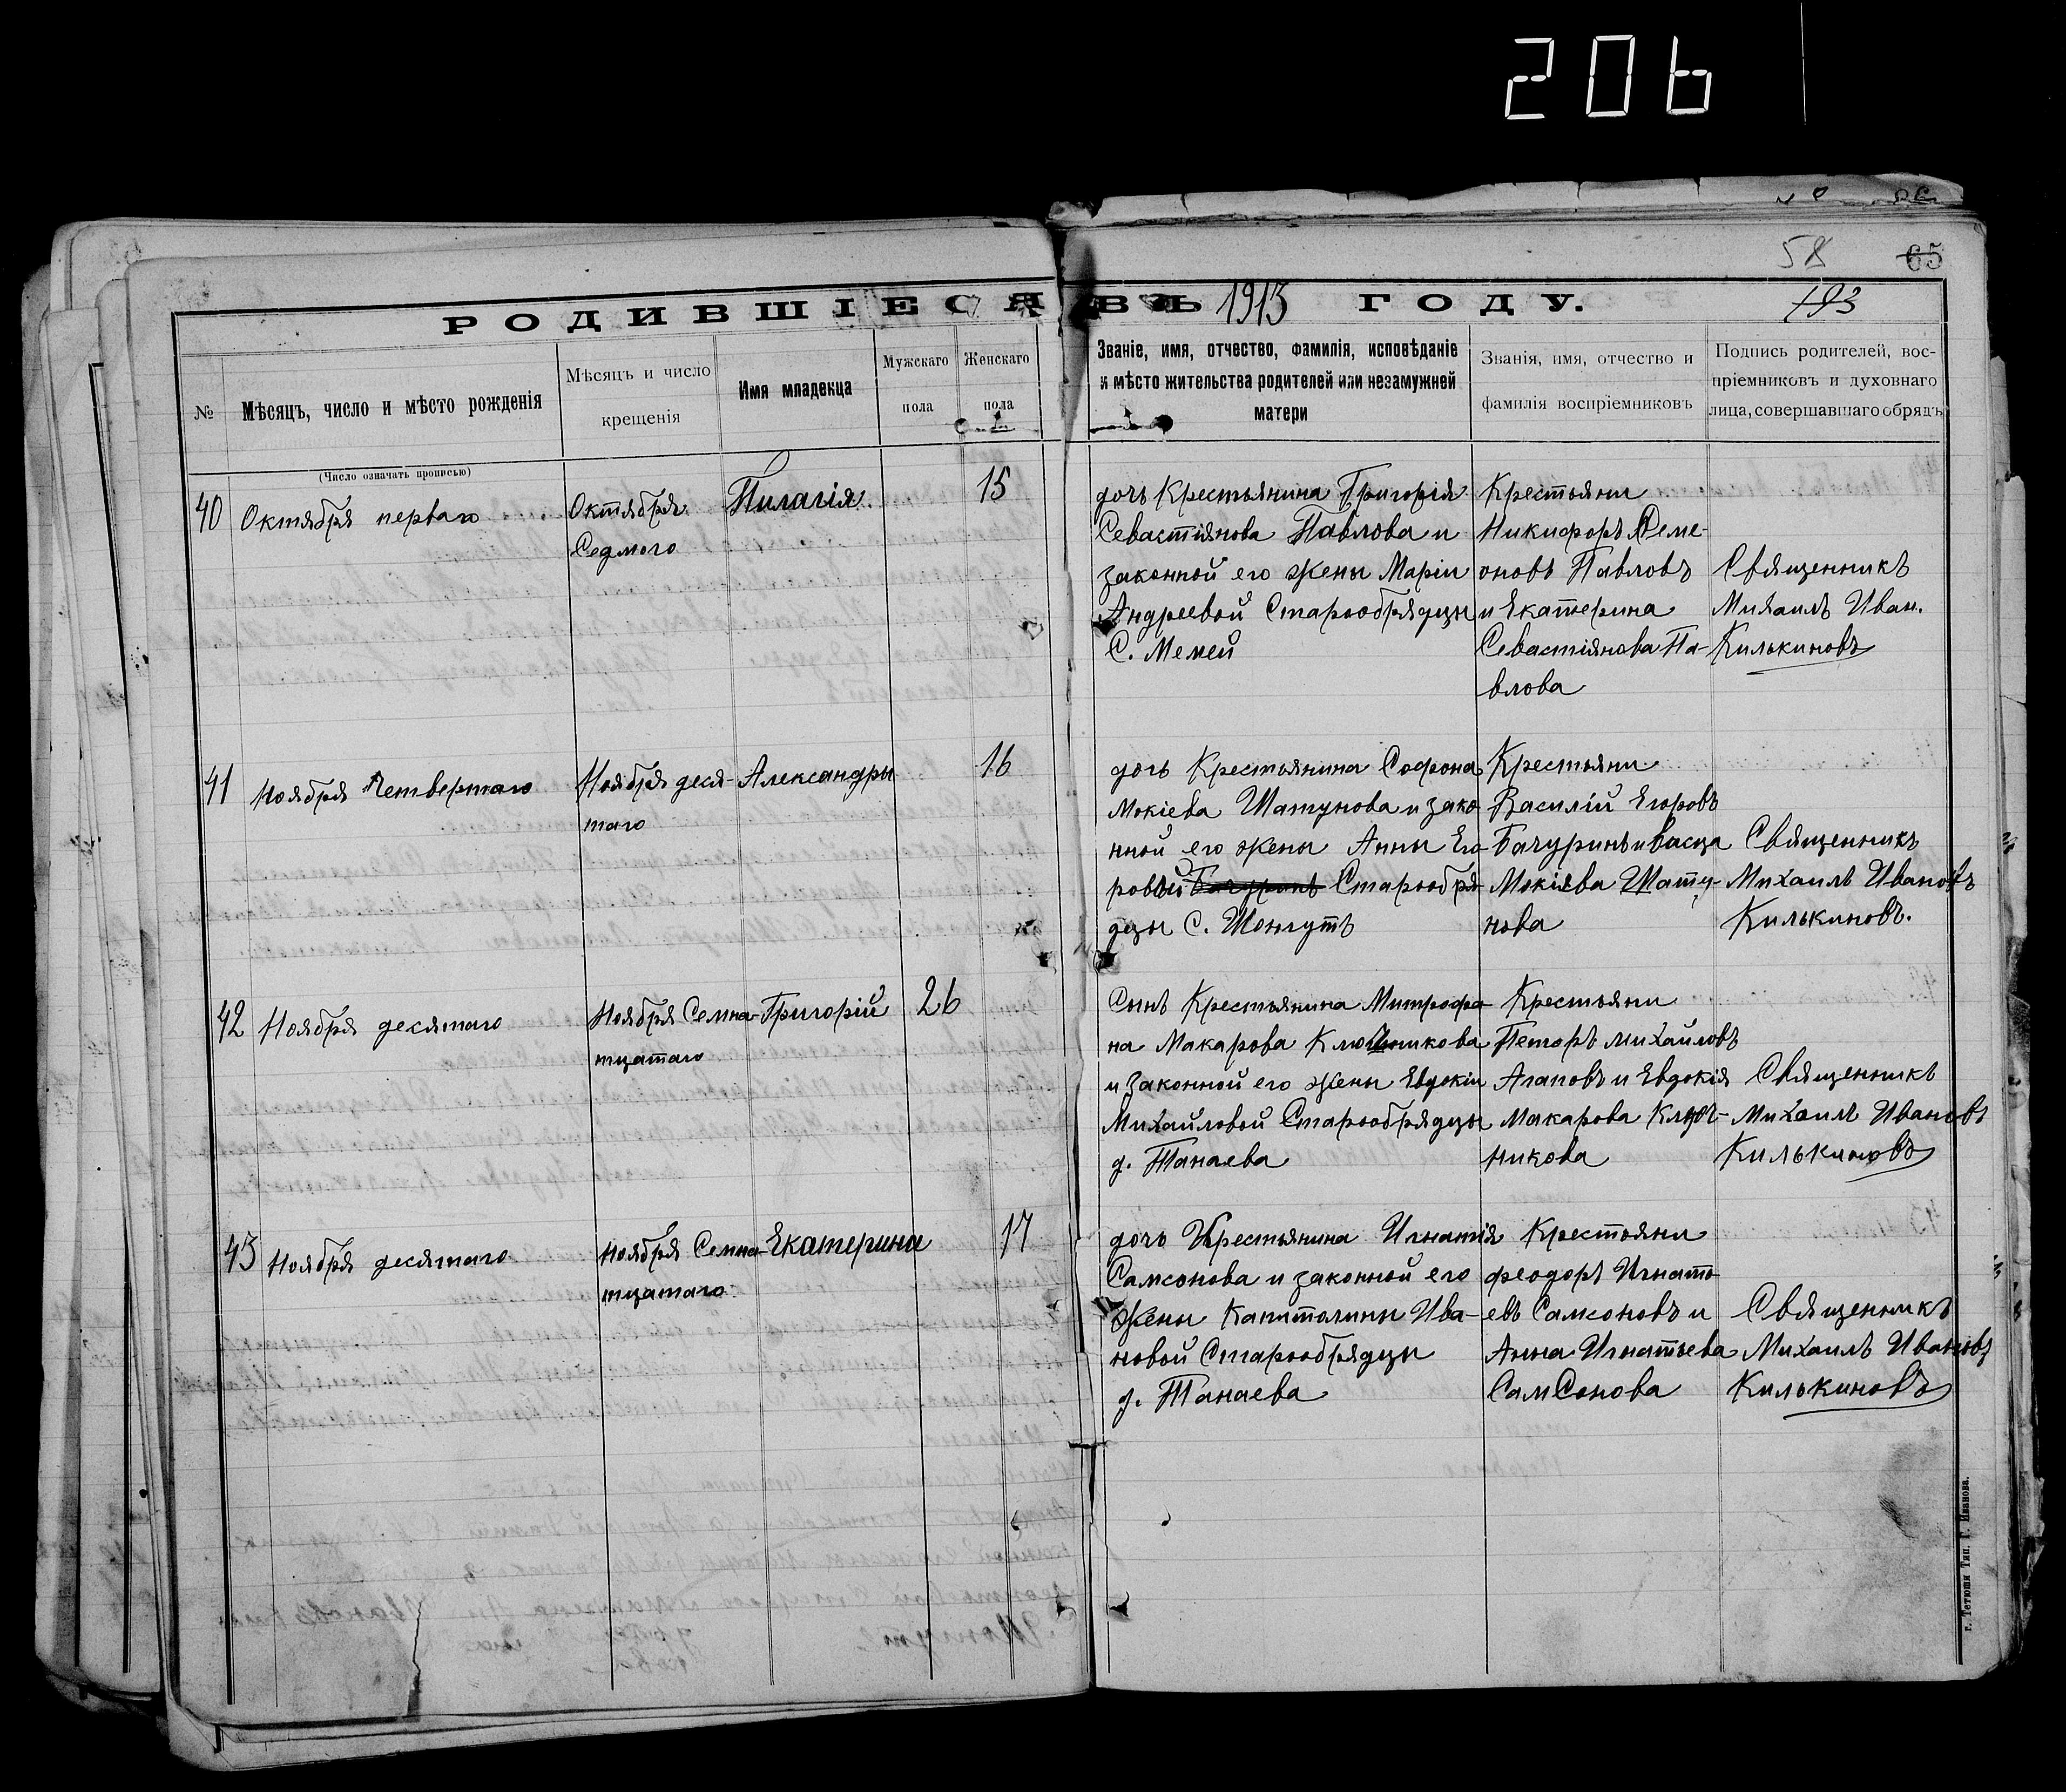 206
58 65
РОДИВШІЕСЯ ВЪ 1913 ГОДУ.
193
№
Мѣсяцъ, число и мѣсто рожденія
Мѣсяцъ и число
крещенія
Имя младенца
Мужскаго
пола
Женскаго
пола
Званіе, имя, отчество, фамилія, исповѣданіе
и мѣсто жительства родителей или незамужней
матери
Званія, имя, отчество и
фамилія воспріемниковъ
Подпись родителей, вос-
пріемниковъ и духовнаго
лица, совершавшаго обрядъ
(Число означать прописью)
40
Октября перваго
Октября
Седмого
Пилагія.
15
дочь Крестьянина Григорія
Севастіянова Павлова и
законной его жены Маріи
Андреевой Старообрядцы
С. Мемей
Крестьяни
Никифоръ Семе-
оновъ Павловъ
и Екатерина
Севастіянова Па-
влова
Священникъ
Михаилъ Иван.
Килькиновъ
41
Ноября Четвертаго
Ноября деся-
таго
Александры
16
дочь Крестьянина Софона
Мокіева Шатунова и зако-
нной его жены Анны Его-
ровой Бачуринъ Старообря-
дцы С. Шонгутъ
Крестьяни
Василій Егоровъ
Бачуринъ и Васса
Мокіева Шату-
нова
Священникъ
Михаилъ Ивановъ
Килькиновъ.
42
Ноября десятаго
Ноября Семна-
тцатаго
Григорій
26
Сынъ Крестьянина Митрофа-
на Макарова Ключникова
и Законной его жены Евдокіи
Михайловой Старообрядцы
д. Танаева
Крестьяни
Петоръ Михайловъ
Агаповъ и Евдокія
Макарова Ключ-
никова
Священникъ
Михаилъ Ивановъ
Килькиновъ
43
Ноября десятаго
Ноября Семна-
тцатаго
Екатерина
17
дочь Крестьянина Игнатія
Самсонова и законной его
жены Капитолины Ива-
новой Старообрядцы
д. Танаева
Крестьяни
феодоръ Игнать-
евъ Самсоновъ и
Анна Игнатьева
СамСонова
Священникъ
Михаилъ Ивановъ
Килькиновъ
г. Тетюши Тип. Г. Иванова.